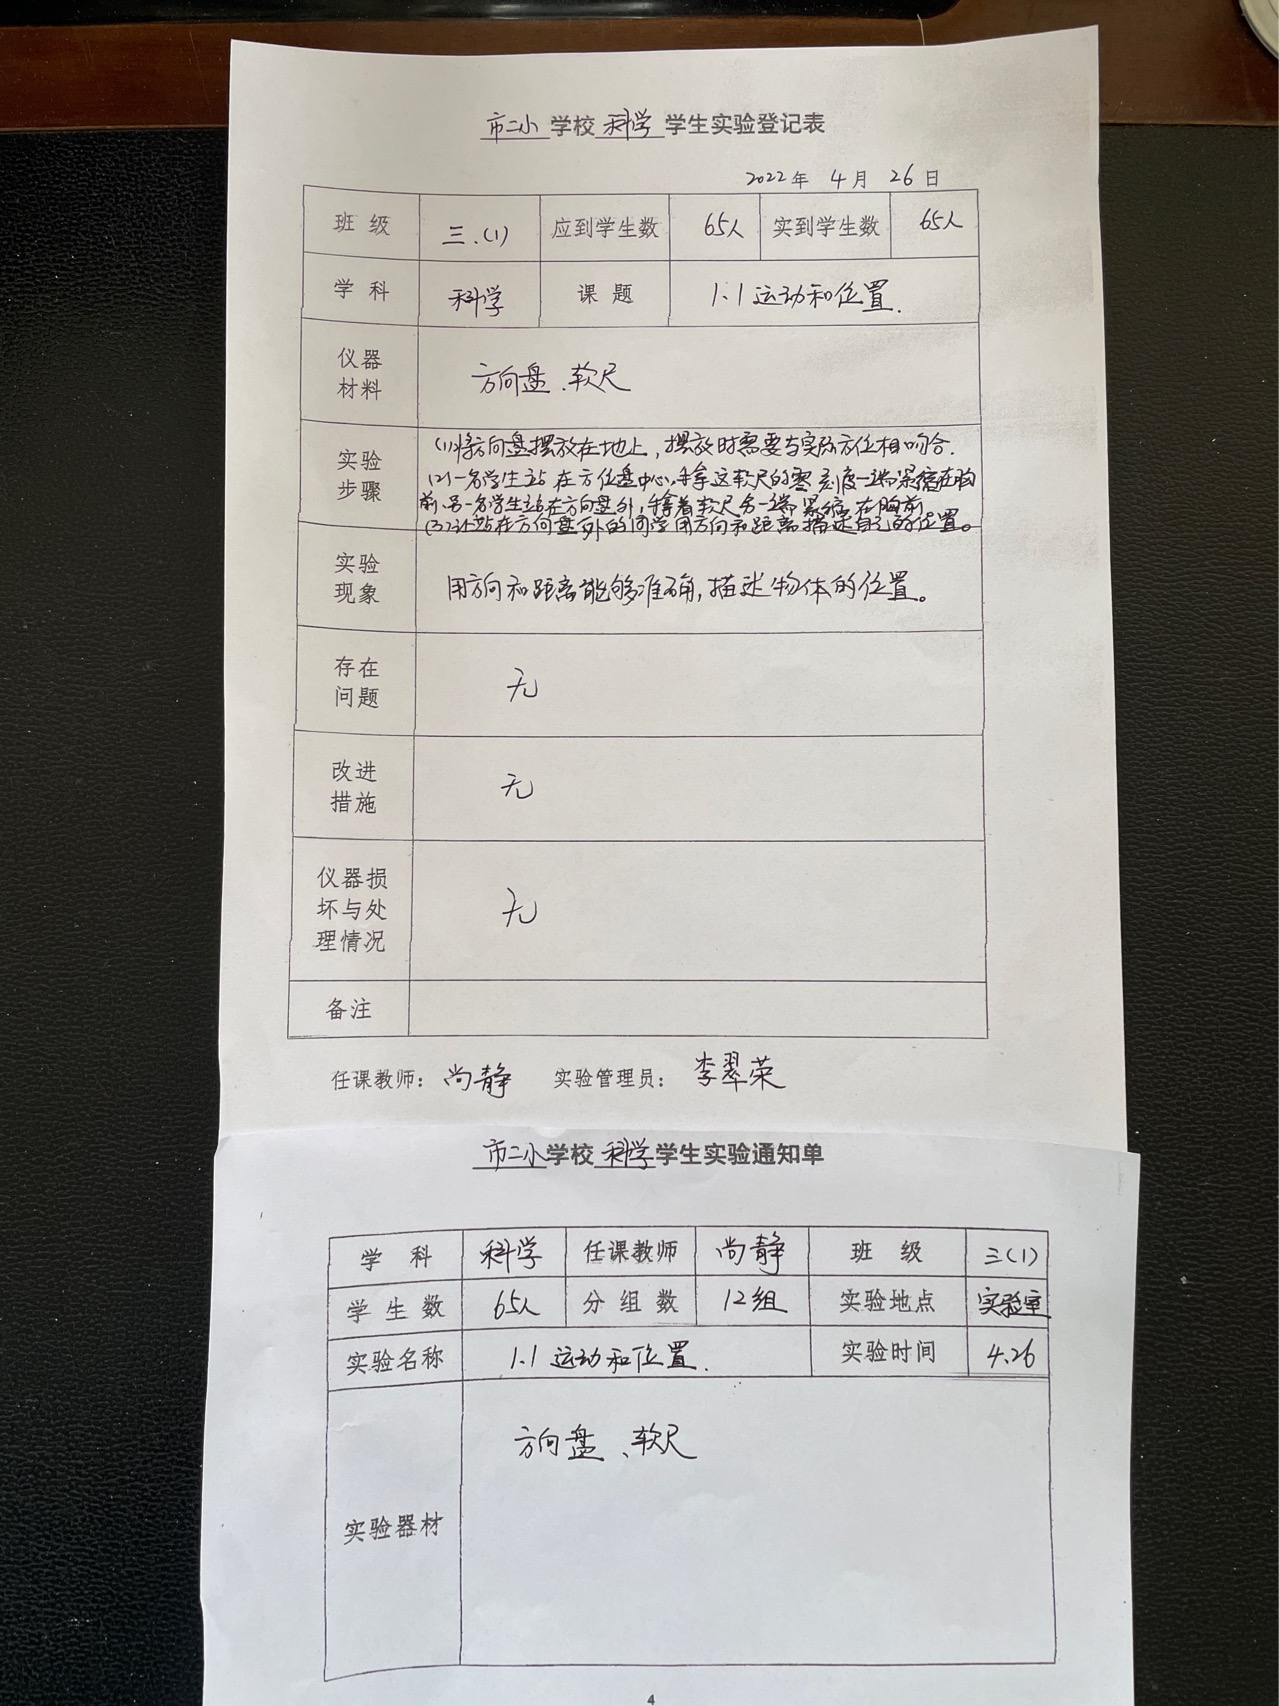 市二小 学校 科学 学生实验登记表
2022 年 4 月 26 日
班 级 三.(1) 应到学生数 65人 实到学生数 65人
学 科 科学 课 题 1.1 运动和位置.
仪器
材料
方向盘、软尺
实验
步骤
(1)将方向盘摆放在地上，摆放时需要与实际方位相吻合.
(2)一名学生站在方位盘中心,手拿这软尺的零刻度一端紧缩在胸
前.另一名学生站在方向盘外，手拿着软尺另一端紧缩在胸前
(3)让站在方向盘外的同学用方向和距离描述自己的位置。
实验
现象
用方向和距离能够准确,描述物体的位置。
存在
问题
无
改进
措施
无
仪器损
坏与处
理情况
无
备注
任课教师： 尚静 实验管理员： 李翠荣
市二小 学校 科学 学生实验通知单
学 科 科学 任课教师 尚静 班 级 三(1)
学 生 数 65人 分 组 数 12组 实验地点 实验室
实验名称 1.1 运动和位置. 实验时间 4.26
实验器材
方向盘、软尺
4